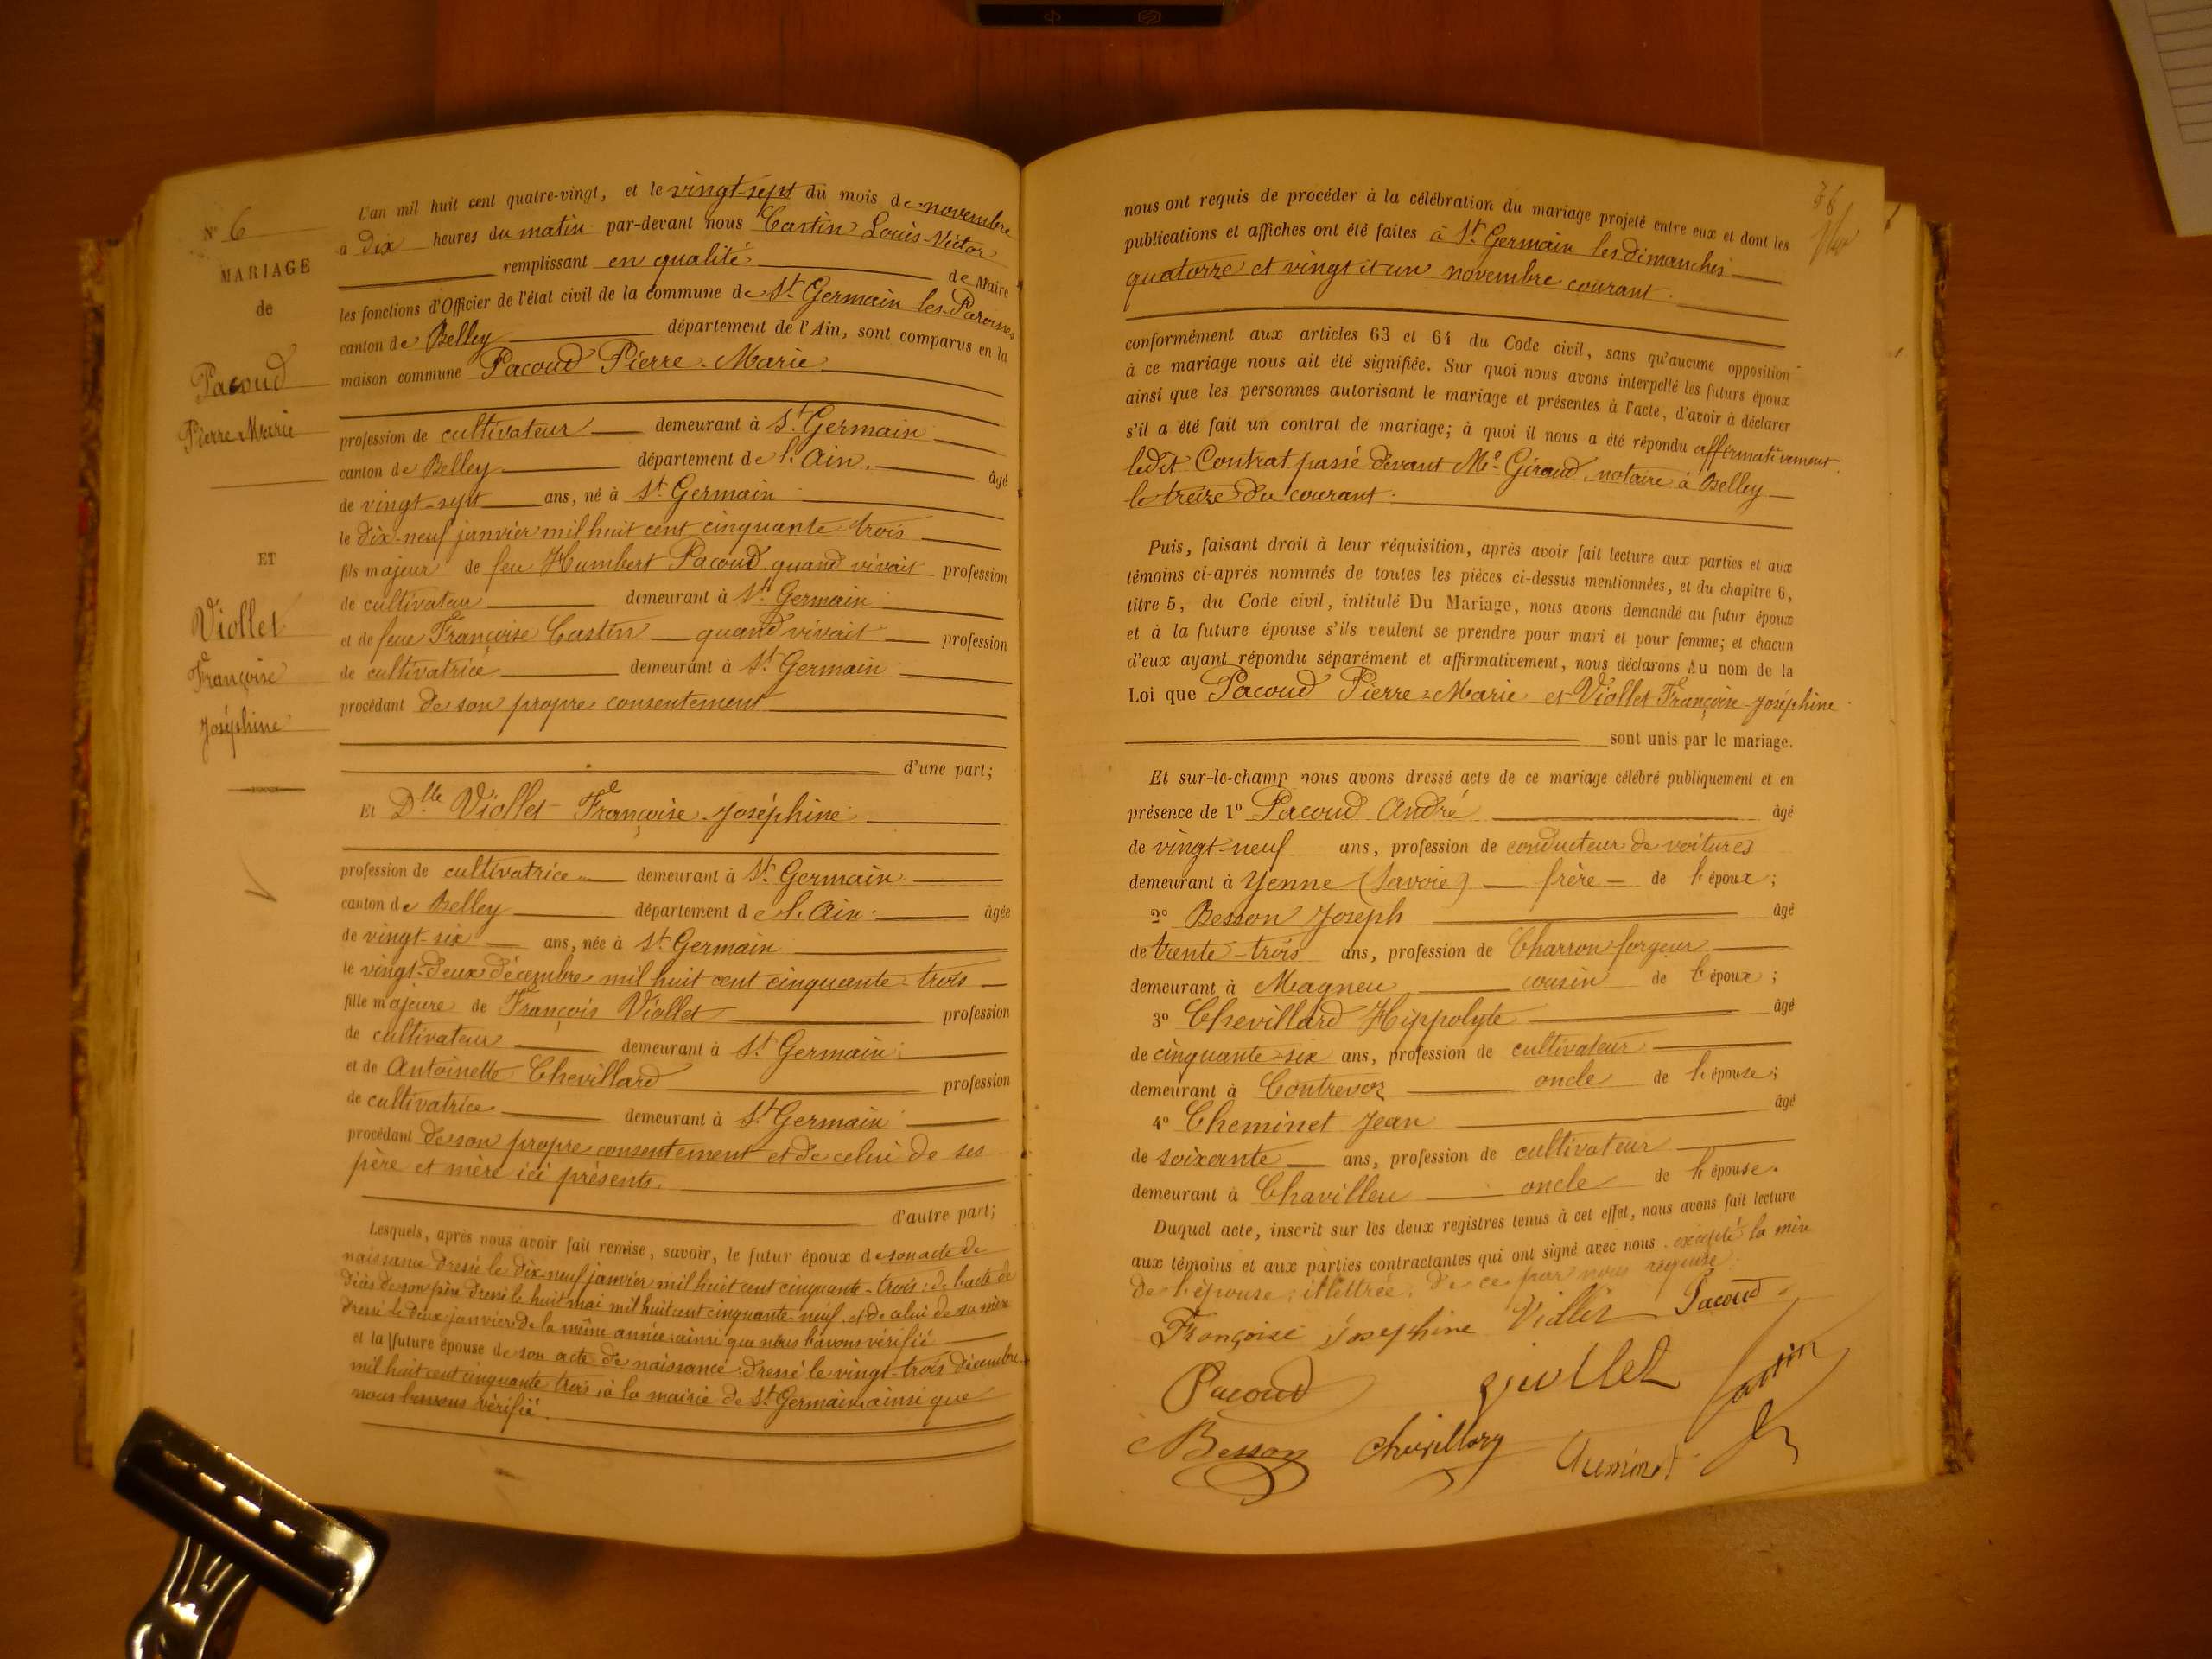 N° 6
MARIAGE
de
Pacoud
Pierre Marie
ET
Viollet
Françoise
Joséphine
L'an mil huit cent quatre-vingt, et le vingt-sept du mois de novembre
à dix heures du matin par-devant nous Castin Louis-Victor
remplissant en qualité de Maire
les fonctions d'Officier de l'état civil de la commune de St Germain les Paroisses
canton de Belley département de l'Ain, sont comparus en la
maison commune Pacoud Pierre-Marie
profession de cultivateur demeurant à St Germain
canton de Belley département de l'Ain. âgé
de vingt-sept ans, né à St Germain
le dix-neuf janvier mil huit cent cinquante-trois
fils majeur de feu Humbert Pacoud quand vivait profession
de cultivateur demeurant à St Germain
et de feue Françoise Castin quand vivait profession
de cultivatrice demeurant à St Germain
procédant de son propre consentement
d'une part;
Et Dlle Viollet Françoise-Joséphine
profession de cultivatrice demeurant à St Germain
canton de Belley département de l'Ain âgée
de vingt-six ans, née à St Germain
le vingt-deux décembre mil huit cent cinquante-trois
fille majeure de François Viollet profession
de cultivateur demeurant à St Germain
et de Antoinette Chevillard profession
de cultivatrice demeurant à St Germain
procédant de son propre consentement et de celui de ses
père et mère ici présents.
d'autre part;
Lesquels, après nous avoir fait remise, savoir, le futur époux de son acte de
naissance dressé le dix-neuf janvier mil huit cent cinquante-trois; de l'acte de
décès de son père dressé le huit mai mil huit cent cinquante-neuf et de celui de sa mère
dressé le deux janvier de la même année ainsi que nous l'avons vérifié
et la future épouse de son acte de naissance dressé le vingt-trois décembre
mil huit cent cinquante trois à la mairie de St Germain ainsi que
nous l'avons vérifié.
nous ont requis de procéder à la célébration du mariage projeté entre eux et dont les
publications et affiches ont été faites à St Germain les dimanches
quatorze et vingt et un novembre courant.
conformément aux articles 63 et 64 du Code civil, sans qu'aucune opposition
à ce mariage nous ait été signifiée. Sur quoi nous avons interpellé les futurs époux
ainsi que les personnes autorisant le mariage et présentes à l'acte, d'avoir à déclarer
s'il a été fait un contrat de mariage; à quoi il nous a été répondu affirmativement.
ledit Contrat passé devant Me Giraud, notaire à Belley
le treize du courant.
Puis, faisant droit à leur réquisition, après avoir fait lecture aux parties et aux
témoins ci-après nommés de toutes les pièces ci-dessus mentionnées, et du chapitre 6,
titre 5, du Code civil, intitulé Du Mariage, nous avons demandé au futur époux
et à la future épouse s'ils veulent se prendre pour mari et pour femme; et chacun
d'eux ayant répondu séparément et affirmativement, nous déclarons Au nom de la
Loi que Pacoud Pierre-Marie et Viollet Françoise-Joséphine
sont unis par le mariage.
Et sur-le-champ nous avons dressé acte de ce mariage célébré publiquement et en
présence de 1° Pacoud André âgé
de vingt-neuf ans, profession de conducteur de voitures
demeurant à Yenne (Savoie) frère de l'époux;
2° Besson Joseph âgé
de trente-trois ans, profession de Charron forgeur
demeurant à Magneu cousin de l'époux;
3° Chevillard Hippolyte âgé
de cinquante-six ans, profession de cultivateur
demeurant à Contrevoz oncle de l'épouse;
4° Cheminet Jean âgé
de soixante ans, profession de cultivateur
demeurant à Chavilleu oncle de l'épouse.
Duquel acte, inscrit sur les deux registres tenus à cet effet, nous avons fait lecture
aux témoins et aux parties contractantes qui ont signé avec nous. excepté la mère
de l'épouse, illettrée, de ce par nous requise.
Françoise Joséphine Viollet Pacoud
Pacoud
Besson Chevillard Cheminet